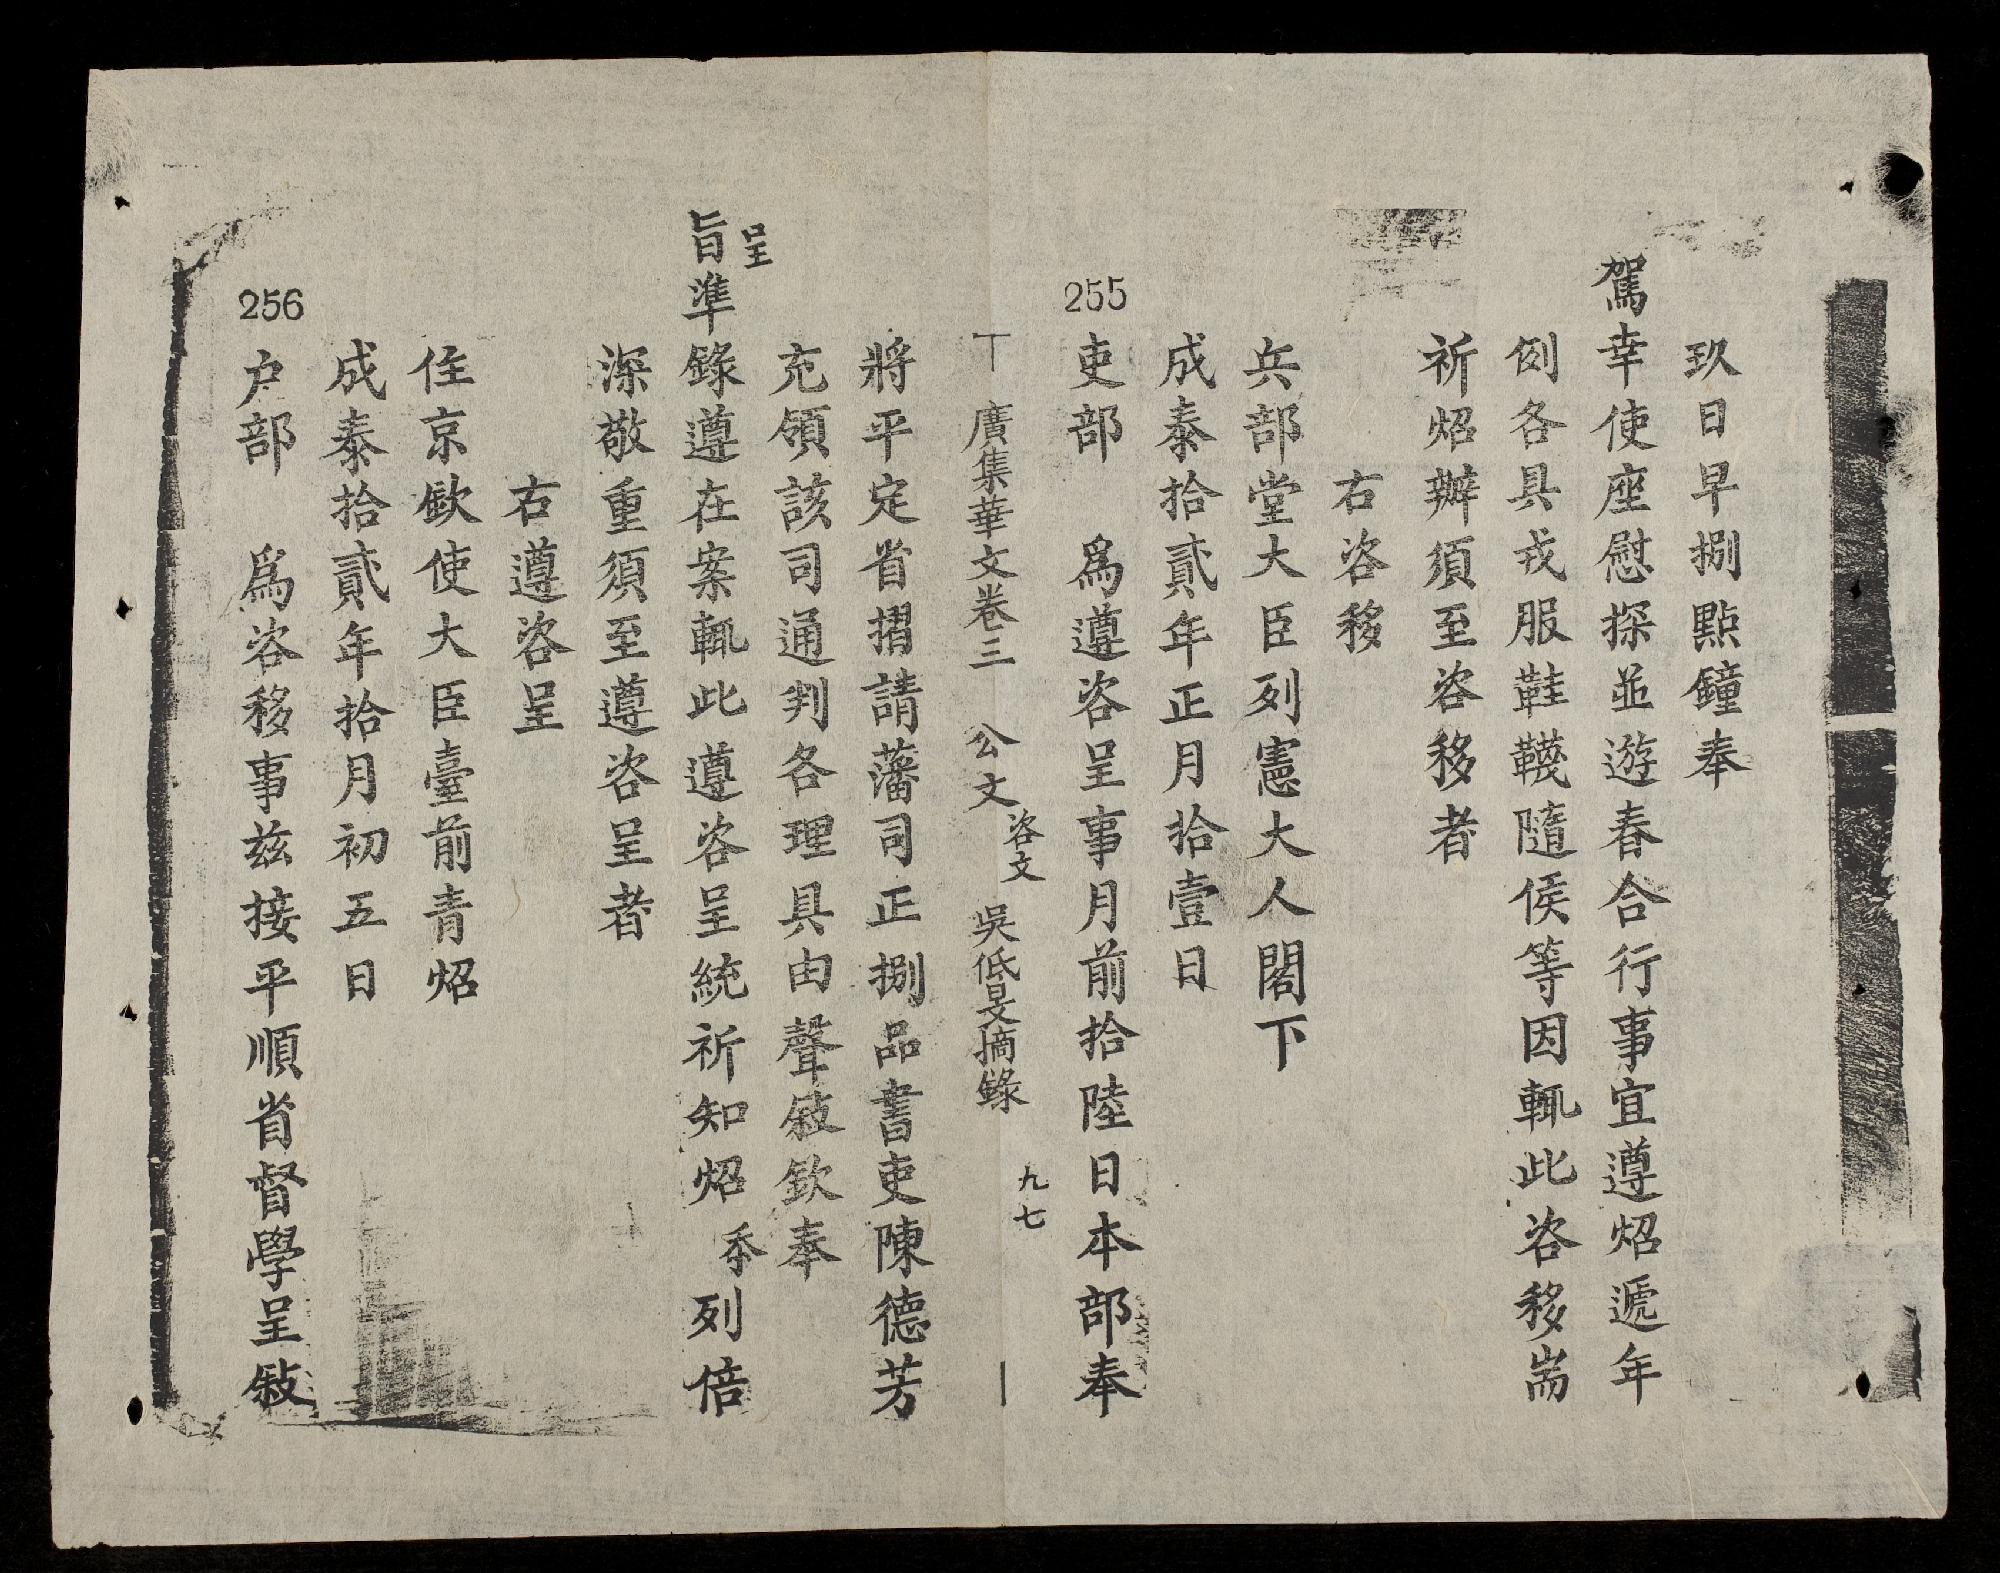 玖日早捌點鐘奉
駕幸使座慰探並遊春合行事宜遵炤遞年
例各具戎服鞋韈隨侯等因輒此咨移耑
祈炤辦須至咨移者
右咨移
兵部堂大臣列憲大人閣下
成泰拾貳年正月拾壹日
255
吏部 爲遵咨呈事月前拾陸日本部奉
廣集華文卷三 公文 咨文 吳低旻摘錄 九七
將平定省摺請藩司正捌品書吏陳德芳
充領該司通判各理具由聲敍欽奉
呈
旨準錄遵在案輒此遵咨呈統祈知炤 系列倍
深敬重須至遵咨呈者
右遵咨呈
住京欽使大臣臺前青炤
成泰拾貳年拾月初五日
256
户部 爲咨移事兹接平順省督學呈敍